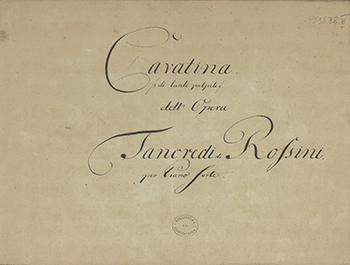 Cavatina
(di tanti palpiti)
dell' Opera
Tancredi di Rossini.
per Piano forte.